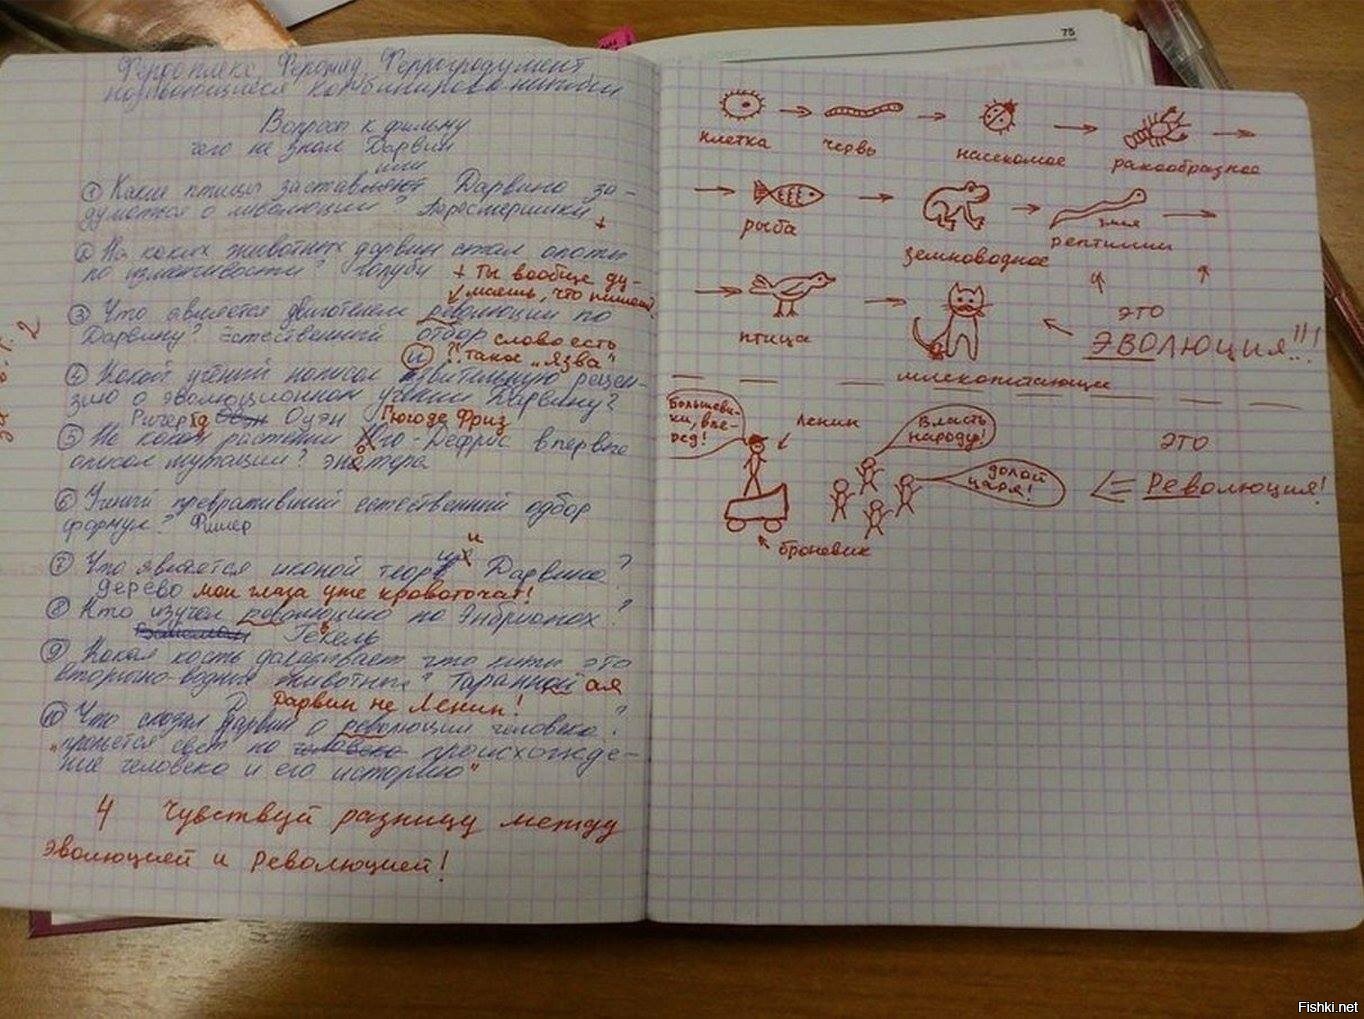 75
Ферроплекс, Ферокад, Феррогродумент
Вопросы к фильму
чего не знал Дарвин
или
① Какие птицы заставляют Дарвина за-
думаться о эволюции? Пересмешники
+
② На каких животных дарвин стал опоты
по изменчивости? голуби + Ты вообще ду-
маешь, что пишешь?
③ Что является двигателем революции по
Дарвину? Естественный отбор слово есть
и ?! такое „Язва"
④ Какой учёный написал язвительную рецен-
зию о эволюционном учении Дарвину?
Ричерд Оуэн Гюгоде Фриз
⑤ На каком растении Юго-Дефрис впервые
описал мутации? энотера
⑥ Учёный превративший естественный одбор
формулу? Фишер
и
⑦ Что является иконой теории Дарвина?
дерево мои глаза уже кровоточат!
⑧ Кто изучал революцию по Энбрионах?
Гекель
⑨ Какая кость доказывает что киты это
вторично-водные животные? Таранной ая
Дарвин не Ленин!
⑩ Что сказал Дарвин о революции человека?
„прольется свет на человека происхожде-
ние человека и его историю"
4 Чувствуй разницу между
Эволюцией и Революцией!
2
клетка червь насекомое ракообразное
рыба земноводное змея рептилии
птица млекопитающие
это
ЭВОЛЮЦИЯ!!!
Большеви-
ки, впе-
ред!
Ленин
Власть
народу!
Долой
царя!
броневик
это
Революция!
Fishki.net